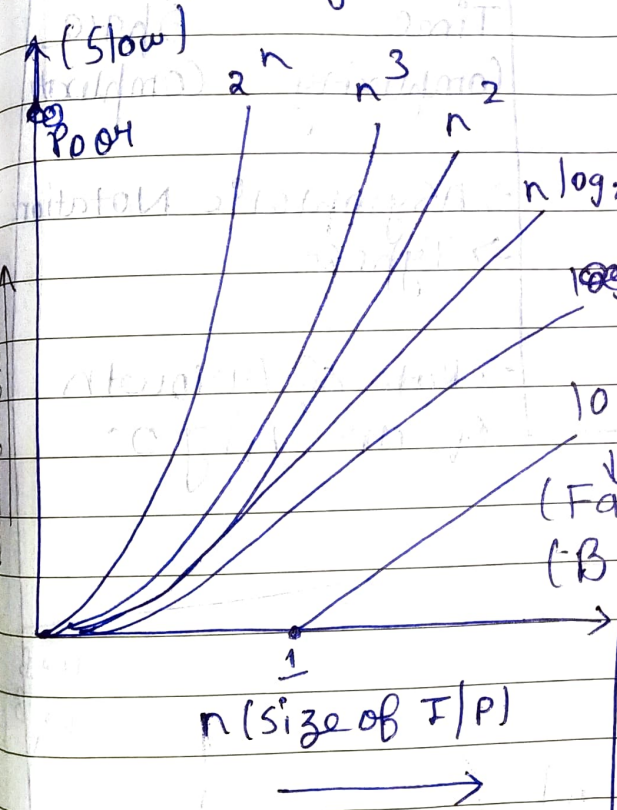 (Slow)
Poor
2^n
n^3
n^2
n log
10
(Fa
(B
1
n (size of I/P)